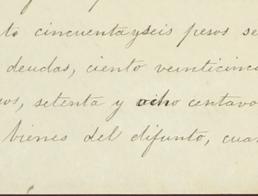 to cincuenta y seis pesos se
deudas, ciento veinticinc
os, setenta y ocho centavo
bienes del difunto, cua